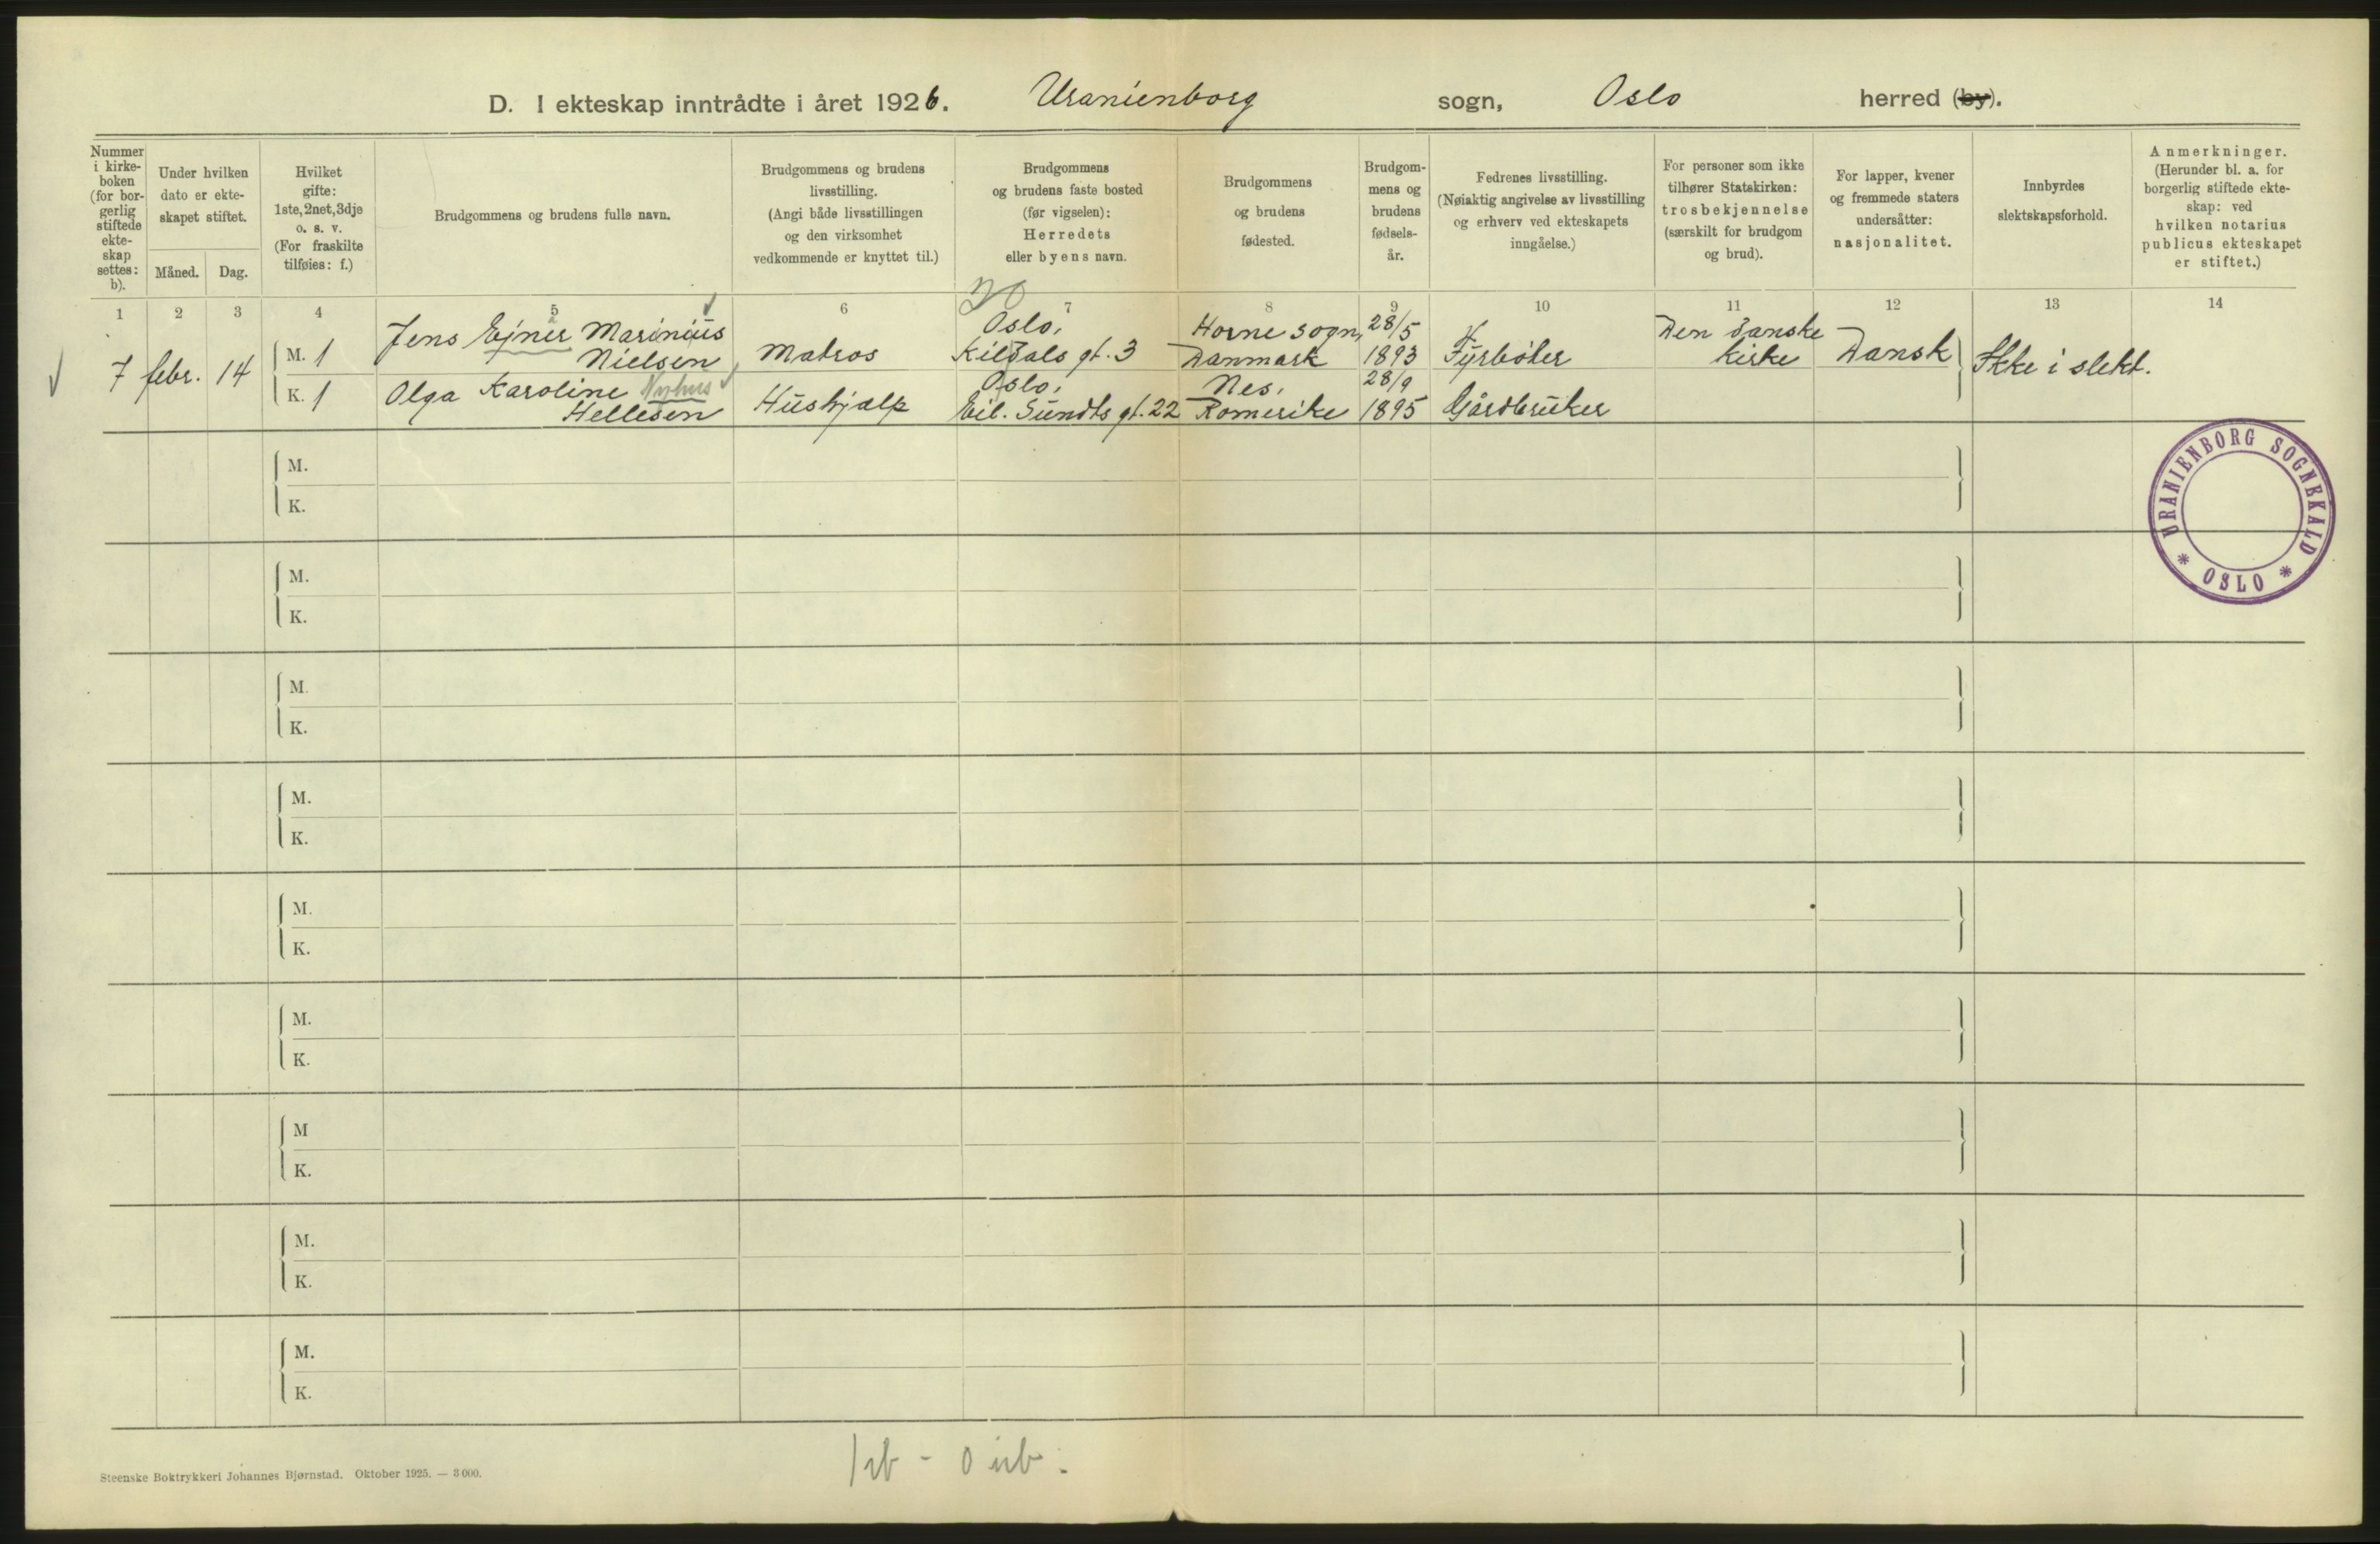 D. I ekteskap inntrådte i året 1926. Uranienborg sogn, Oslo herred (by).
Nummer i kirke-boken (for bor-gerlig stiftede ekte-skap settes: b).
Under hvilken dato er ekte-skapet stiftet.
Måned.
Dag.
Hvilket gifte: 1ste, 2net, 3dje o. s. v. (For fraskilte tilføies: f.)
Brudgommens og brudens fulle navn.
Brudgommens og brudens livsstilling. (Angi både livsstillingen og den virksomhet vedkommende er knyttet til.)
Brudgommens og brudens faste bosted (før vigselen): Herredets eller byens navn.
Brudgommens og brudens fødested.
Brudgom-mens og brudens fødsels-år.
Fedrenes livsstilling. (Nøiaktig angivelse av livsstilling og erhverv ved ekteskapets inngåelse.)
For personer som ikke tilhører Statskirken: trosbekjennelse (særskilt for brudgom og brud).
For lapper, kvener og fremmede staters undersåtter: nasjonalitet.
Innbyrdes slektskapsforhold.
Anmerkninger. (Herunder bl. a. for borgerlig stiftede ekte-skap: ved hvilken notarius publicus ekteskapet er stiftet.)
1 2 3 4 5 6 7 8 9 10 11 12 13 14
7 febr. 14
M. 1 Jens Ejner Marinius Nielsen Matros Oslo, Kildals gt. 3 Horne sogn, Danmark 28/5 1893 Fyrbøter Den danske kirke Dansk Ikke i slekt.
K. 1 Olga Karoline Nyhus Hellesen Hushjalp Oslo, Eil. Sundts gt. 22 Nes, Romerike 28/9 1895 Gårdbruker
M.
K.
M.
K.
M.
K.
M.
K.
M.
K.
M.
K.
M
K.
M.
K.
M.
K.
URANIENBORG SOGNEKALD * OSLO *
Steenske Boktrykkeri Johannes Bjørnstad. Oktober 1925. — 3 000.